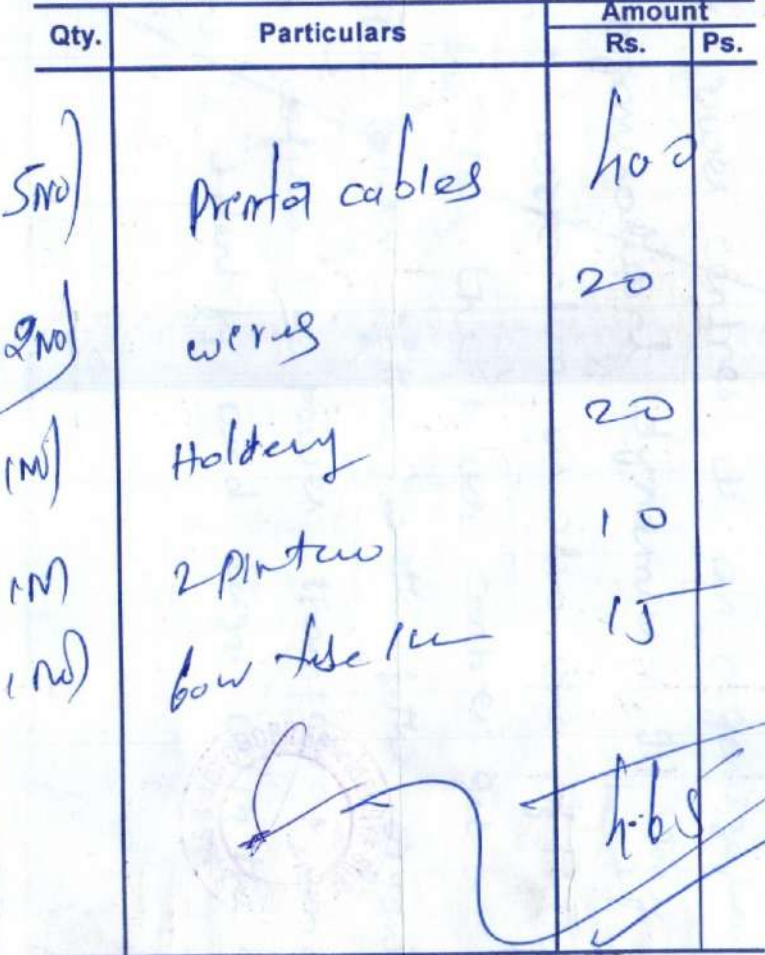 Qty. Particulars Amount
Rs. Ps.
5NO) Printer cables 400
2NO) wires 20
1NO) Holders 20
1NO) 2 pin 10
1NO) 60w 15
465